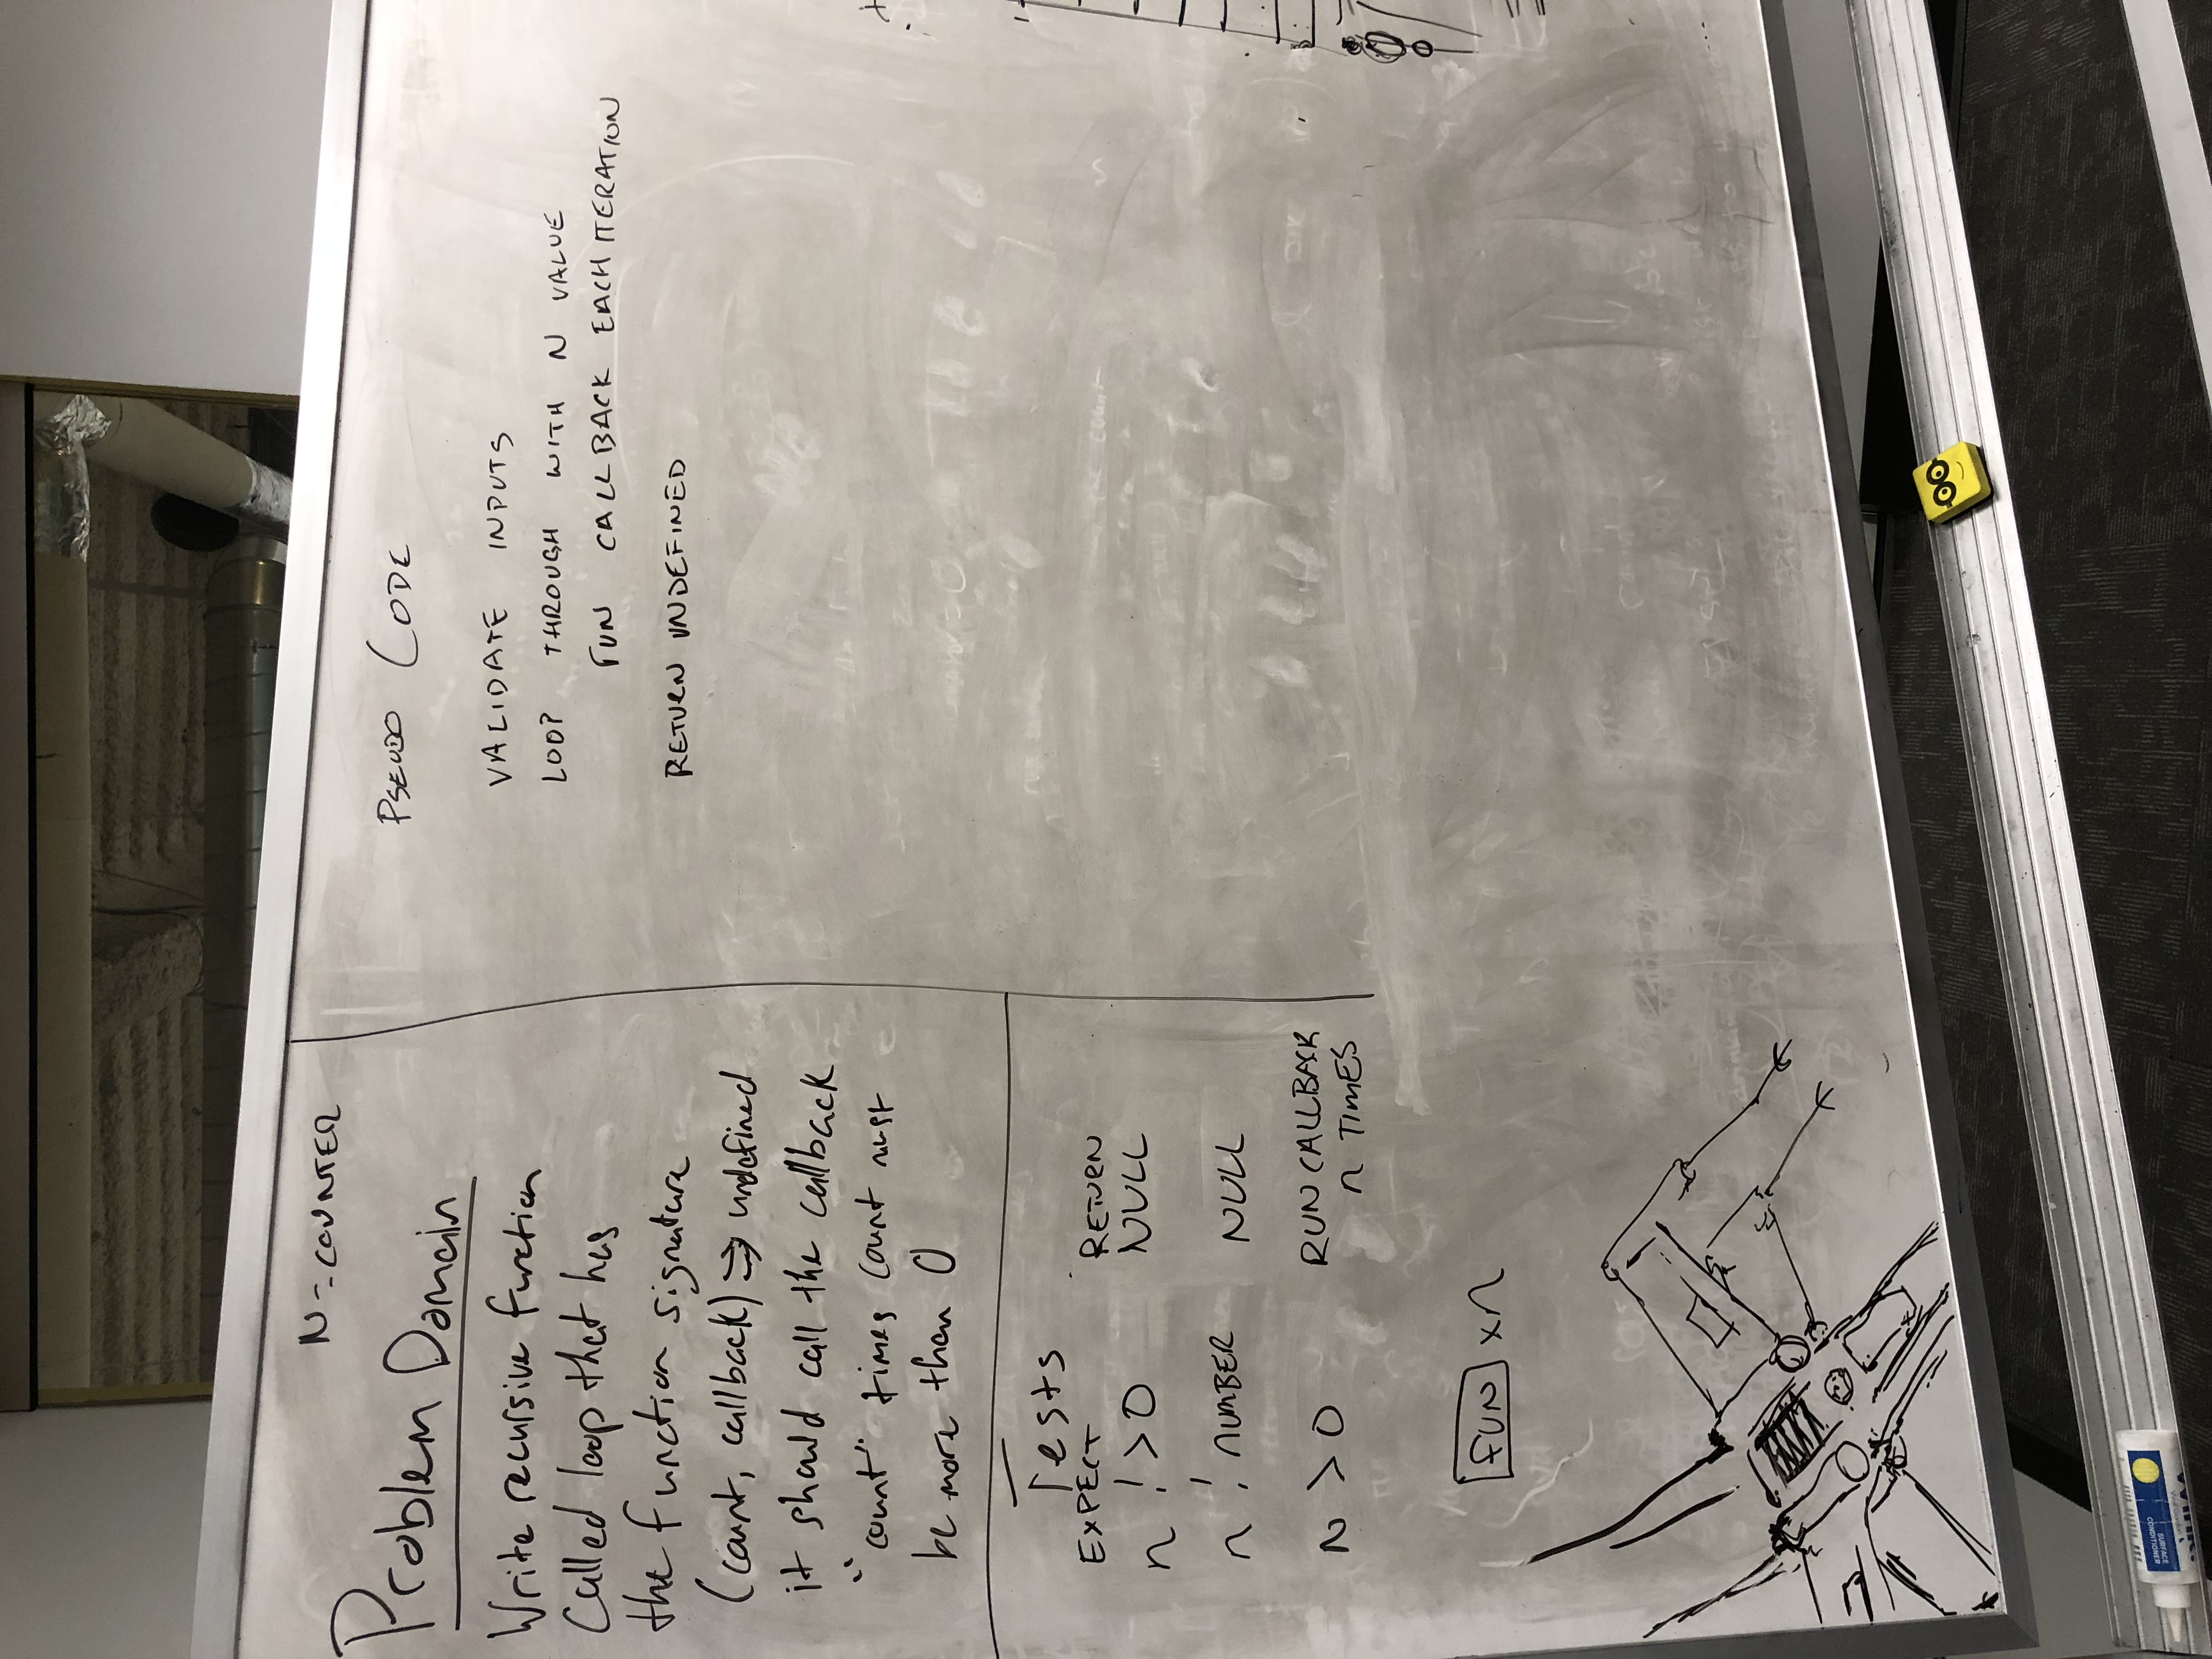 N = COUNTER
Problem Domain
Write recursive function
Called loop that has
the function signature
(count, callback) => undefined
it should call the callback
"count" times count must
be more than 0
Tests
EXPECT RETURN
n !>0 NULL
n ! NUMBER NULL
N > 0 RUN CALLBACK
n TIMES
FUN xn
PSEUDO CODE
VALIDATE INPUTS
LOOP THROUGH WITH N VALUE
FUN CALLBACK EACH ITERATION
RETURN UNDEFINED
SURFACE
CONDITIONER